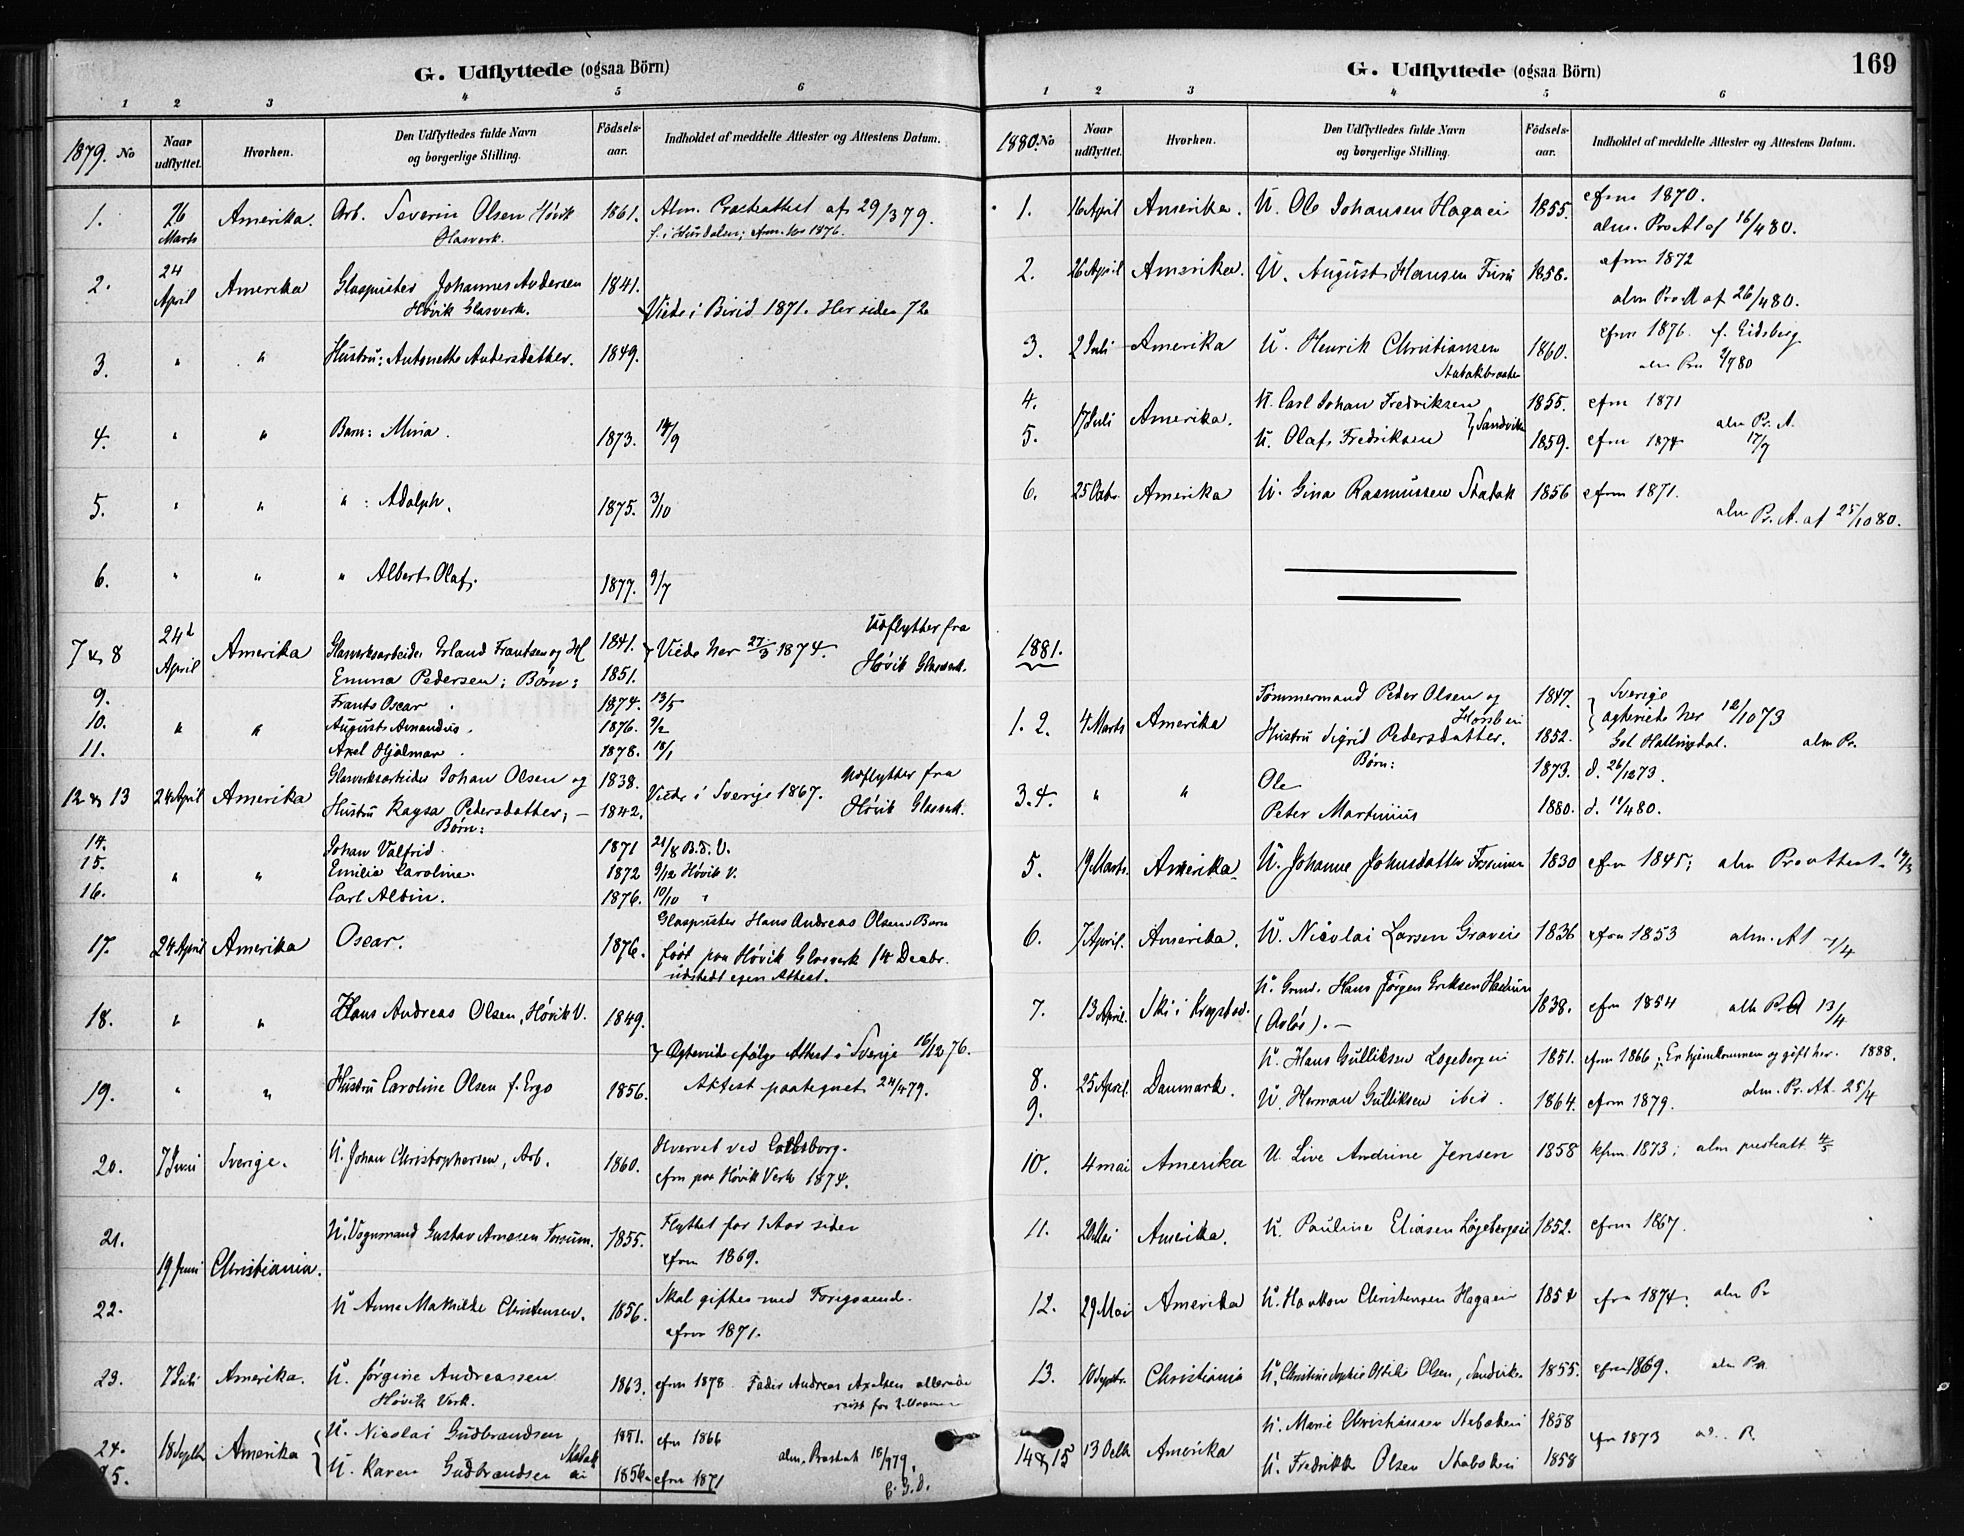 G. Udflyttede (ogsaa Börn)
1 2 3 4 5 6
1879. No
Naar udflyttet.
Hvorhen.
Den Udflyttedes fulde Navn og borgerlige Stilling.
Födsels-aar.
Indholdet af meddelte Attester og Attestens Datum.
1. 26 Marts Amerika. Arb. Severin Olsen Høvik Glasverk. 1861. Alm. Præsteattest af 29/379.
f. i Hurdalen; cfrm. 1876.
2. 24 April Amerika Glaspuster Johannes Andersen 1841.
Høvik Glasverk. Viede i Birid 1871. Her siden 72
3. " " Hustru: Antonette Andersdatter. 1849.
4. " " Barn: Mina. 1873. 14/9
5. " " " : Adolph. 1875. 3/10
6. " " " Albert Olaf. 1877. 9/7
7 & 8 24 April Amerika Glasverksarbeider Erland Frantsen og H 1841. Viede her 27/3 1874. Udflytter fra
Emma Pedersen; Børn: 1851. Høvik Glasverk.
9. Frants Oscar 1874. 13/5
10. " " August Amandus. 1876. 9/2
11. Axel Hjalmar. 1878. 18/1
12 & 13 24 April Amerika Glasverksarbeider Johan Olsen og 1838. Viede i Sverige 1867. Udflytter fra
Hustru Kaysa Pedersdatter; — 1842. Høvik Glasverk.
Børn:
14. Johan Valfrid 1871 21/8 B.d. V.
15. " " Emilia Caroline. 1872 9/12 Høvik V.
16. Carl Albin. 1876. 10/10 "
17. 24 April Amerika Oscar. 1876. Glaspuster Hans Andreas Olsens Barn
født paa Høvik Glasverk 14 Decbr.
udstedt egen Attest.
18. " " Hans Andreas Olsen, Høvik V. 1849.
Ægteviede ifølge Attest i Sverige 16/1276.
19. " " Hustru Caroline Olsen f. Ergo 1856. Attest paategnet 24/479.
20. 7 Juni Sverige. U. Johan Christophersen, Arb. 1860. Hvervet ved
cfrm paa Høvik Verk 1874.
21. U. Vognmand Gustav Arnesen Fossum. 1855. Flyttet for 1 Aar siden
cfrm 1869.
19 Juni Christiania.
22. U Anne Mathilde Christensen. 1856. Skal giftes med Foregaaende.
cfrm 1871.
23. 7 Juli Amerika. U. Jørgine Andreassen 1863. cfrm 1878. Fader Andreas Axelsen allerede
Høvik Verk. reist for
24. 18 Septbr Amerika U. Nicolai Gudbrandsen 1851. cfrm 1866
25. U. Karen Gudbrandsen Stabæk 1856 cfrm 1871 alm. Præsteat 18/979.
G. Udflyttede (ogsaa Börn) 169
1 2 3 4 5 6
1880. No
Naar udflyttet.
Hvorhen.
Den Udflyttedes fulde Navn og borgerlige Stilling.
Födsels-aar.
Indholdet af meddelte Attester og Attestens Datum.
1. 16 April Amerika. U. Ole Johansen Hagaei 1855. cfrm 1870.
alm. PrAt af 16/480.
2. 26 April Amerika. U. August Hansen Furu 1858. cfrm 1872
alm PrA af 26/480.
3. 2 Juli Amerika U. Henrik Christiansen 1860. cfrm 1876. f. Eidsberg
Stabækbraaten alm Pra 2/780
4. U. Carl Johan Fredriksen 1855. cfrm 1871
17 Juli Amerika. Sandviken alm Pr. A.
5. U. Olaf Fredriksen 1859. cfrm 1874 17/7
6. 25 Octbr. Amerika U. Gina Rasmussen Stabæk 1856 cfrm 1871.
alm Pr. A. af 25/1080.
1881.
1. 2. 4 Marts Amerika Tømmermand Peder Olsen og 1847. Sverige
Hustru Sigrid Pedersdatter. 1852. ægteviede her 12/1073
Gol Hallingdal. alm Pr.
Børn:
Ole 1873. d. 26/1273.
3. 4. " " Peter Martinius 1880. d. 14/480.
5. 19 Marts. Amerika. U. Johanne Johnsdatter Fossum 1830 cfrm 1845; alm Præsteattest 19/3
6. 7 April. Amerika. U. Nicolai Larsen Gravei 1836 cfrm 1853 alm. At 7/4
7. 13 April. Ski i Kraagstad. U. Grmd. Hans Jørgen Eriksen 1838. cfrm 1854 alm PrA 13/4
(Asløs). —
8. U. Hans Gulliksen Løgebergei 1851. cfrm 1866; Er hjemkommen og gift her. 1888.
25 April. Danmark.
9. U. Herman Gulliksen ibid. 1864. cfrm 1879. alm. Pr. At. 25/4
10. 4 mai Amerika U. Live Andrine Jensen 1858 kfrm. 1873; alm presteatt 4/5
11. 20 Mai Amerika. U. Pauline Eliasen Løgebergei 1852. cfrm 1867.
12. 29 Mai Amerika U. Haakon Christensen Hagaei 1854 cfrm 1874. alm Pr
13. 10 Septbr. Christiania U. Christine Sophie Ottilie Olsen, Sandviken 1855. cfrm 1869. alm Pr
14 & 15 13 Octb Amerika U. Marie Christiansen Stabækei 1858 cfrm 1873
U. Fredrikke Olsen Stabækei 1858